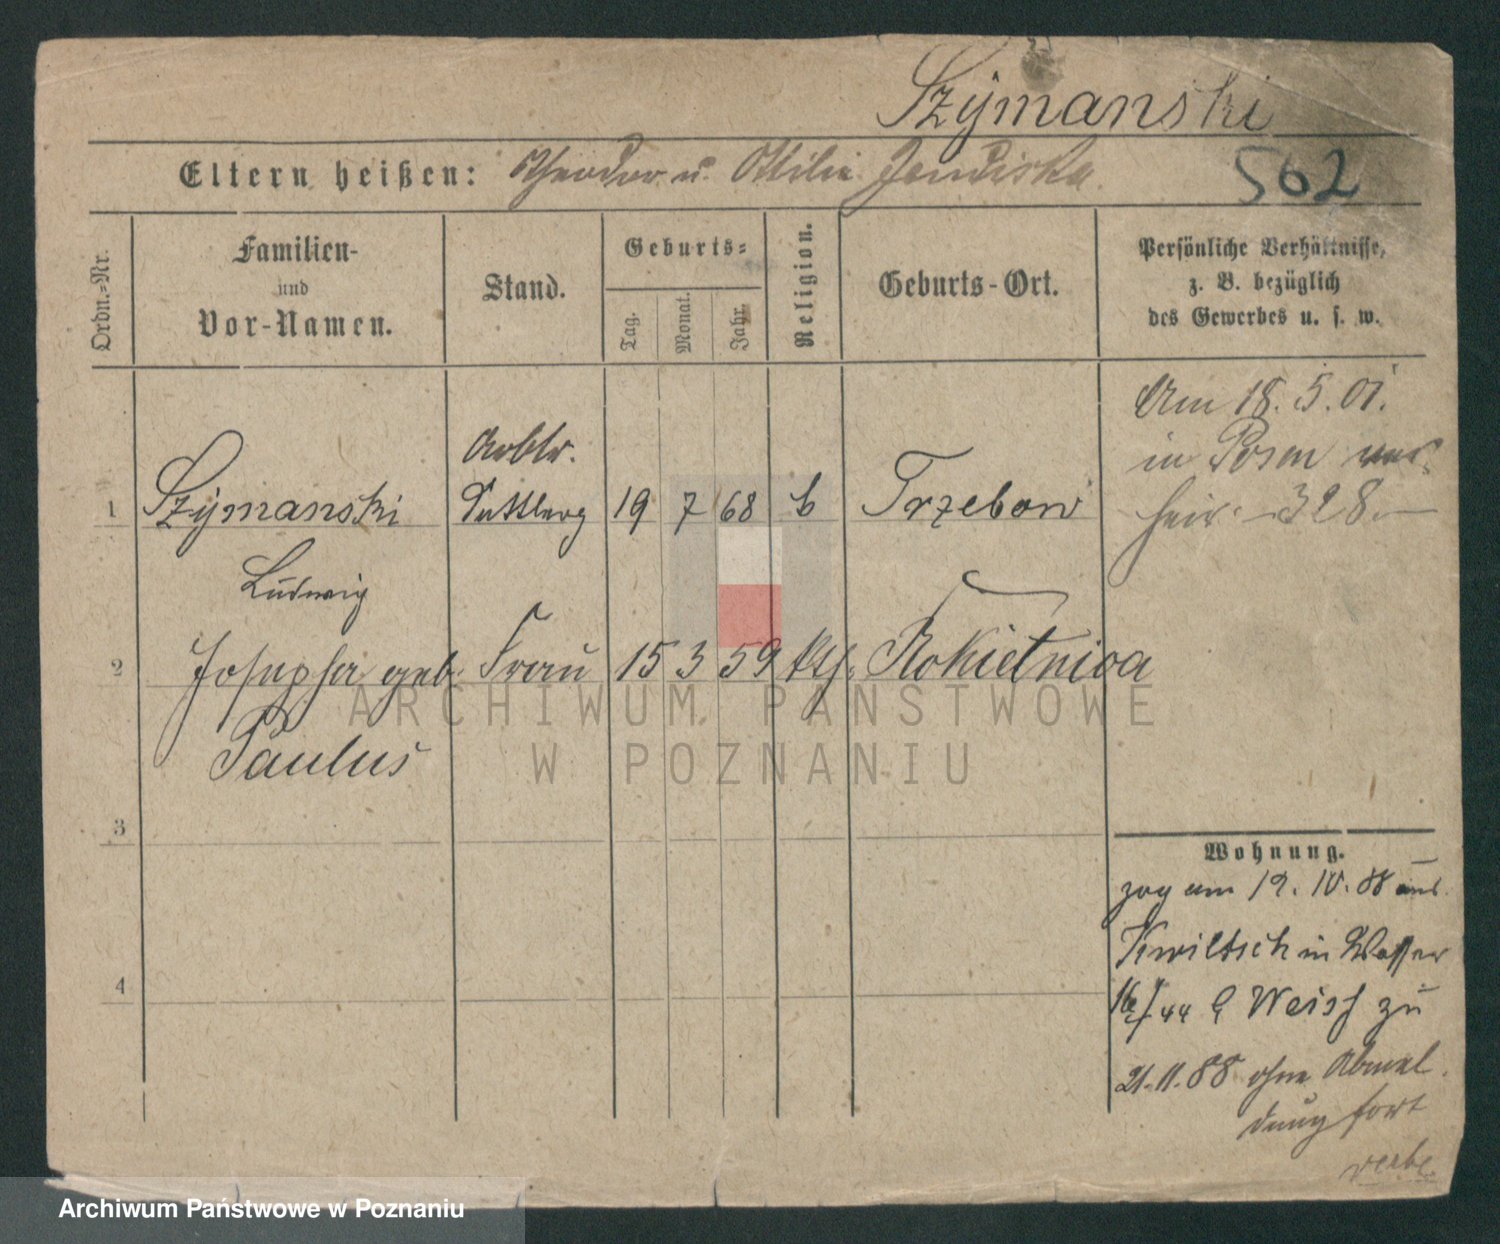 Szÿmanski
Eltern heißen: Theodor u. Ottilie Jendiska
562
Ordn.-Nr.
Familien- und Vor-Namen.
Stand.
Geburts-
Tag.
Monat.
Jahr.
Religion.
Geburts-Ort.
Persönliche Verhältnisse,
z. B. bezüglich
des Gewerbes u. s. w.
Am 18.5.01.
in Posen ver
heir. - 328. -
Arbtr.
1 Szÿmanski 19 7 68 Trzebow
Ludwig
2 Josepha geb. Frau 15 3 59 kth. Rokietnica
Paulus
3
4
Wohnung.
zog am 19. 10. 88 aus
Kwiltsch in Wasser
44 Weiss zu
21.11.88 ohne Abmel
dung fort
ARCHIWUM PAŃSTWOWE
W POZNANIU
Archiwum Państwowe w Poznaniu